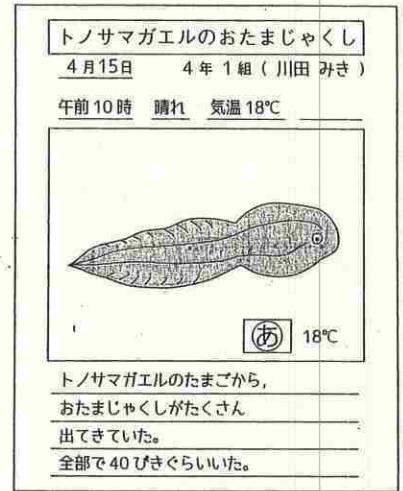 トノサマガエルのおたまじゃくし
4月15日 4年1組(川田 みき)
午前10時 晴れ 気温18℃
あ 18℃
トノサマガエルのたまごから,
おたまじゃくしがたくさん
出てきていた。
全部で40ぴきぐらいいた。